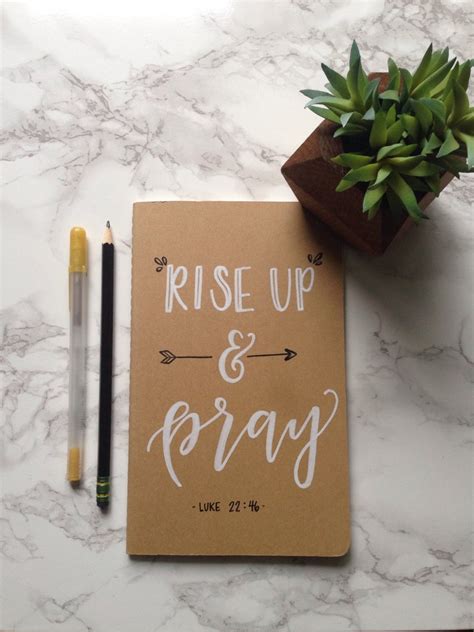 RISE UP
&
pray
- LUKE 22:46 -